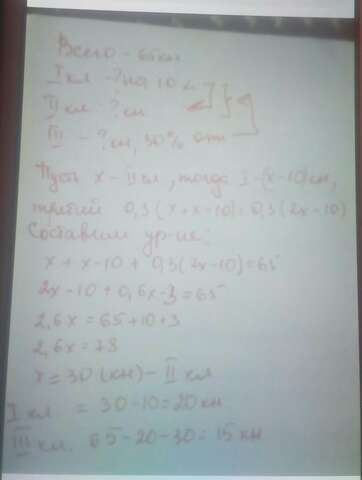 Всего - 65 кн
I кл - ? на 10 <
II кл - ? кн
III - ? кн, 30% от
Пусть x - II кл, тогда I - (x-10) кн,
третий 0,3(x+x-10) = 0,3(2x-10)
Составим ур-ие:
x + x - 10 + 0,3(2x-10) = 65
2x - 10 + 0,6x - 3 = 65
2,6x = 65+10+3
2,6x = 78
x = 30 (кн) - II кл
I кл. = 30-10 = 20 кн
III кл. 65-20-30 = 15 кн